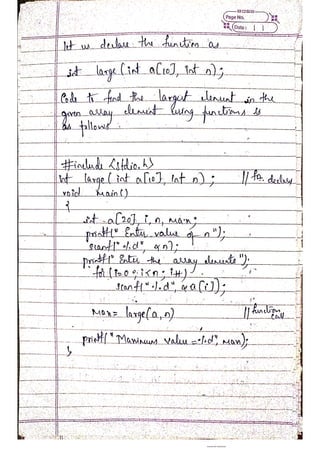 Page No.
Date: | |
let us declare the function as
int large (int a[10], int n);
Code to find the largest element in the
given array element using functions is
as follows.
#include <stdio.h>
int large (int a[10], int n); // fn. declary
void main()
{
int a[20], i, n, max;
printf(" Enter value of n");
scanf("%d", &n);
printf(" Enter the array elements");
for (i=0; i<n; i++)
scanf("%d", &a[i]);
Max= large(a, n) // function call
printf("Maximum value =%d", max);
}